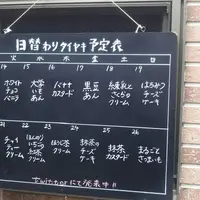 日替わりタイヤキ予定表
火 水 木 金 土 日
14 15 16 17 18 19
ホワイト 大学 バナナ 黒豆 練乳と はちみつ
チョコ いも カスタード あん さくらの チーズ
バニラ あん クリーム ケーキ
21 22 23 24 25 26
チャイ ほんのり ほうじ茶 抹茶 抹茶 まるごと
ティー いちご クリーム チーズ カスタード さつまいも
クリーム クリーム ケーキ
twitterにて発表中!!